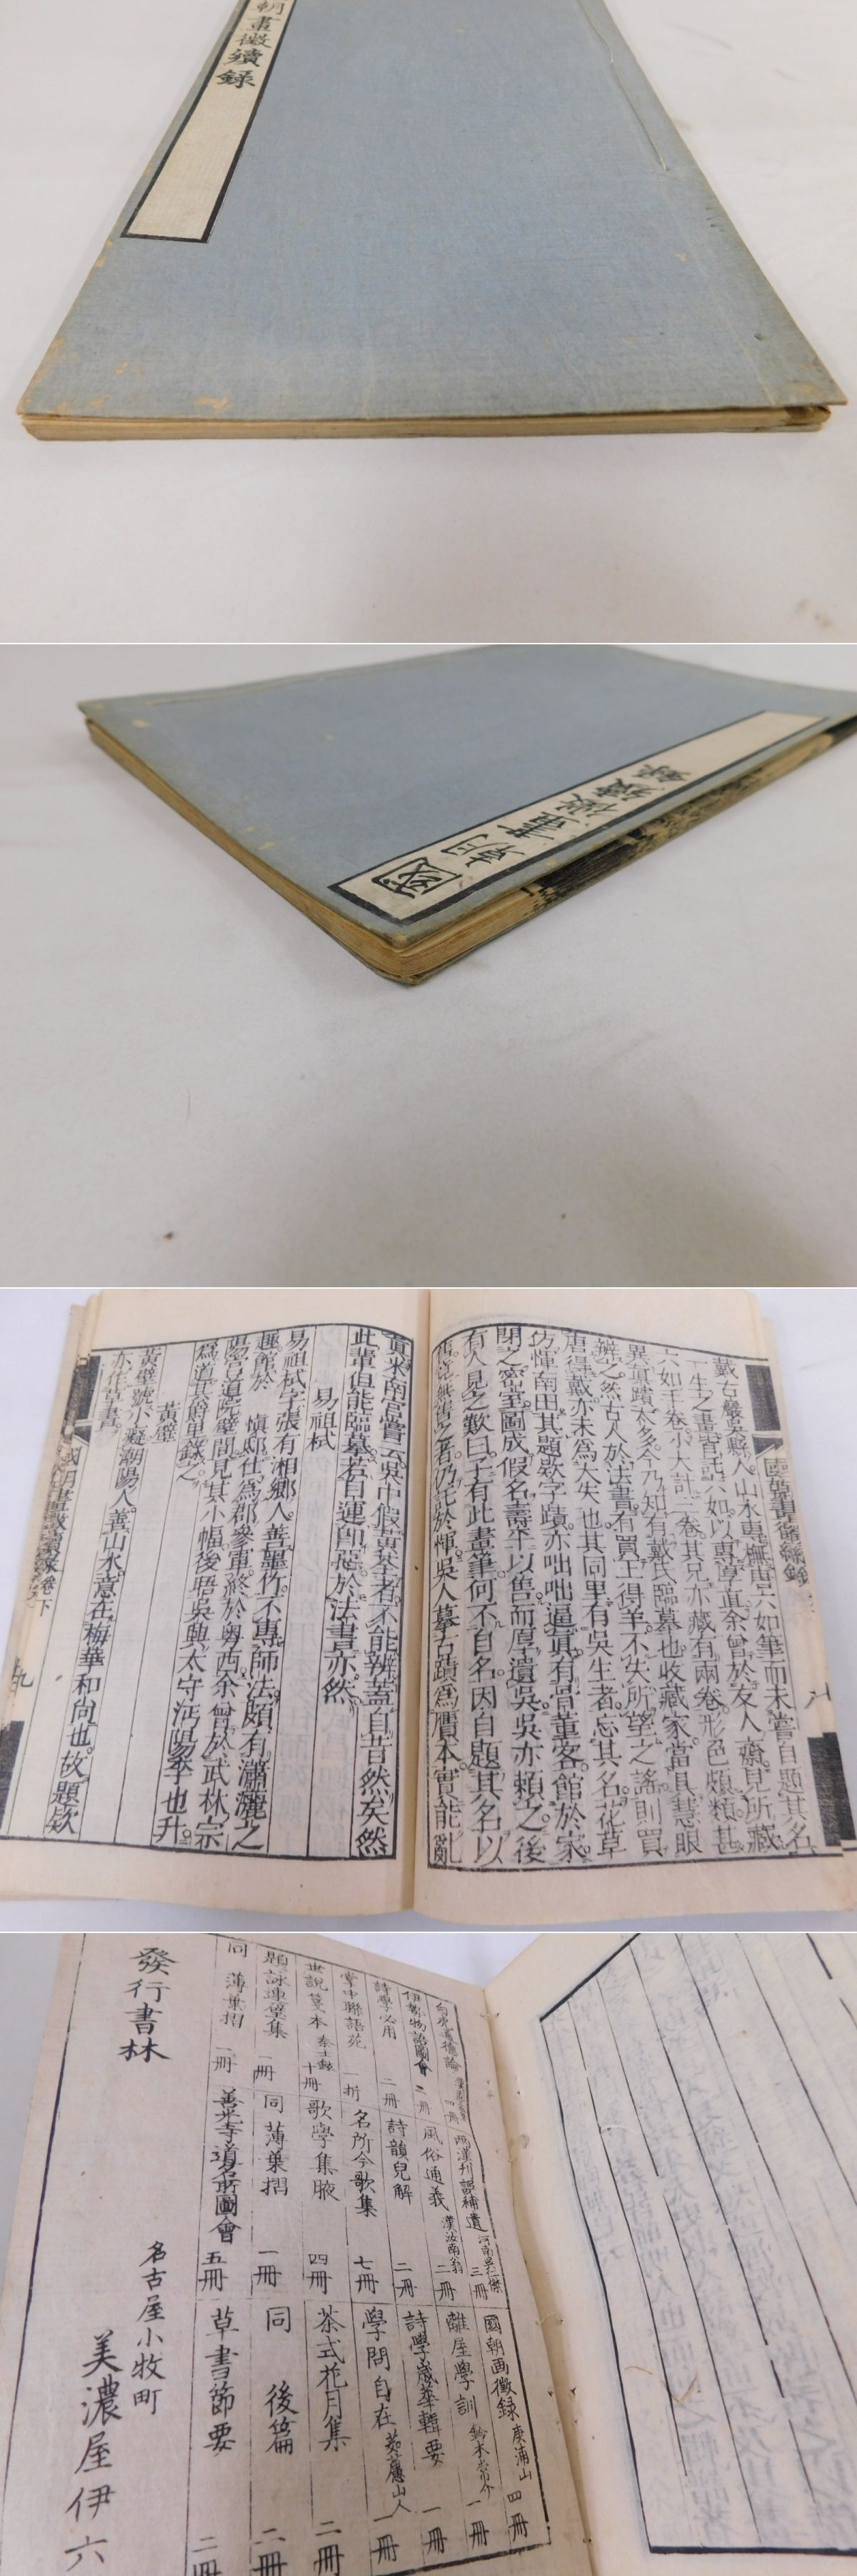 朝畫徵續錄
國朝畫徵續錄
國朝畫徵續錄
戴古巖吳縣人山水專橅唐六如筆而未嘗自題其名
一生之畫皆託六如以專厚直余曾於友人齋見所藏
六如手卷小大計二卷其兄亦藏有兩卷形色頗類甚
異眞蹟太多今乃知有戴氏臨摹也收藏家當具慧眼
辨之然古人於法書有買王得羊不失所望之謠則買
唐得戴亦未為大失也其同里有吳生者忘其名花草
仿惲南田其題欵字蹟亦咄咄逼眞有骨董客館於家
閉之密室圖成假名壽平以售而厚遺吳吳亦頼之後
有人見之歎曰子有此畫筆何不自名因自題其名以
售竟無售之者乃託於惲吳人摹古蹟為贋本實能亂
眞米南宮嘗云吳中假黃荃者不能辨蓋自昔然矣然
此輩但能臨摹若自運卽惡於法書亦然
易祖栻
易祖栻字張有湘鄉人善墨竹不專師法頗有瀟灑之
趣館於慎郡
為道其爵里錄之
黃璧
黃璧號小癡潮陽人善山水意在梅華和尚也故題欵
亦作草書
國朝畫徵續錄卷下
九
兩漢刊誤補遺 河南吳仁傑 三冊
國朝画徵録 庚浦山 四冊
伊勢物語圖會 二冊
風俗通義 漢汝南翁 二冊
離屋學訓 鈴木 一冊
詩學必用 二冊
詩韻兒解 二冊
詩學歲華輯要 一冊
掌中聯語苑 一折
名所今歌集 七冊
學問自在 一冊
世説箋本 秦士鉉 十冊
歌學集腋 四冊
茶式花月集 二冊
題詠連璧集 一冊
同 薄葉摺 一冊
同 後篇 二冊
同 薄葉摺 一冊
善光寺道名所圖會 五冊
草書節要 二冊
發行書林
名古屋小牧町
美濃屋伊六